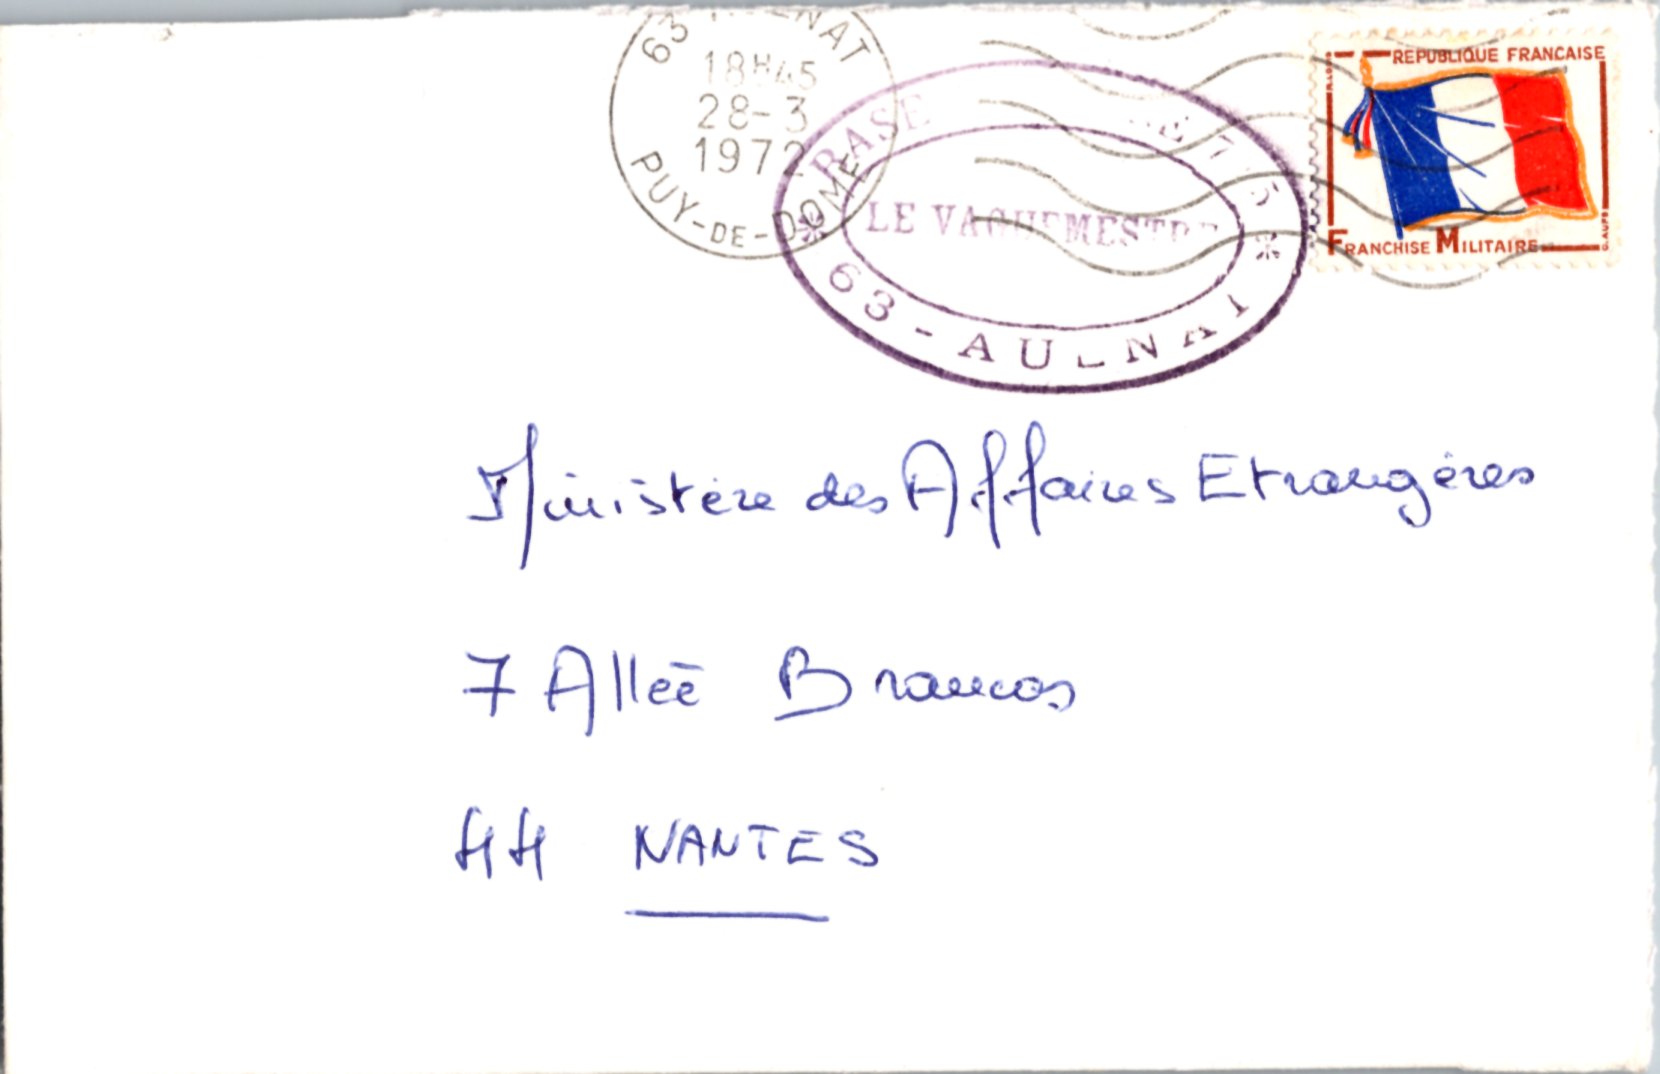 63
18H45
28-3
1972
PUY-DE-DOME
BASE
LE VAGUEMESTRE
63-AULNAT
REPUBLIQUE FRANCAISE
FRANCHISE MILITAIRE
Ministère des Affaires Etrangéres
7 Allée Brancas
44 NANTES